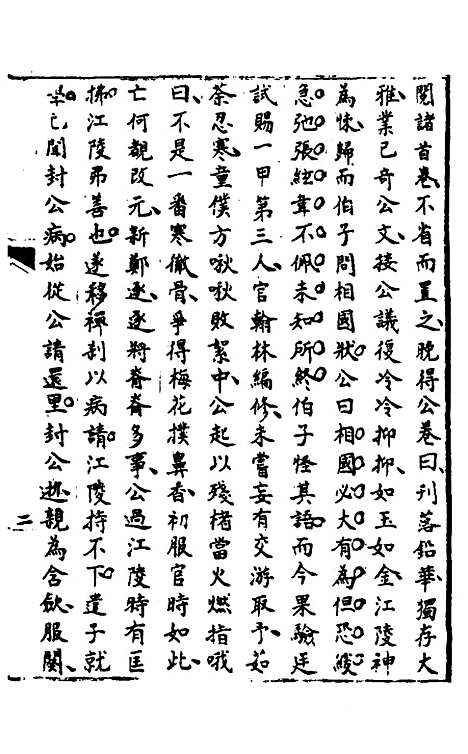 閱諸首卷不省而置之晚得公卷曰刊落鉛華獨存大
雅業已奇公文接公議復冷冷抑抑如玉如金江陵神
為悚歸而伯子問相國狀公曰相國必大有為但恐緩
急弛張絃韋不佩未知所終伯子怪其語而今果驗廷
試賜一甲第三人官翰林編修未嘗妄有交游取予茹
荼忍寒童僕方啾啾敗絮中公起以殘楮當火燃指哦
曰不是一番寒徹骨爭得梅花撲鼻香初服官時如此
亡何覩改元新鄭逐逐將脊脊多事公過江陵時有匡
拂江陵弗善也遂移禪剎以病請江陵持不下遣子就
學已聞封公病始從公請還里封公逝親為含斂服闋
二